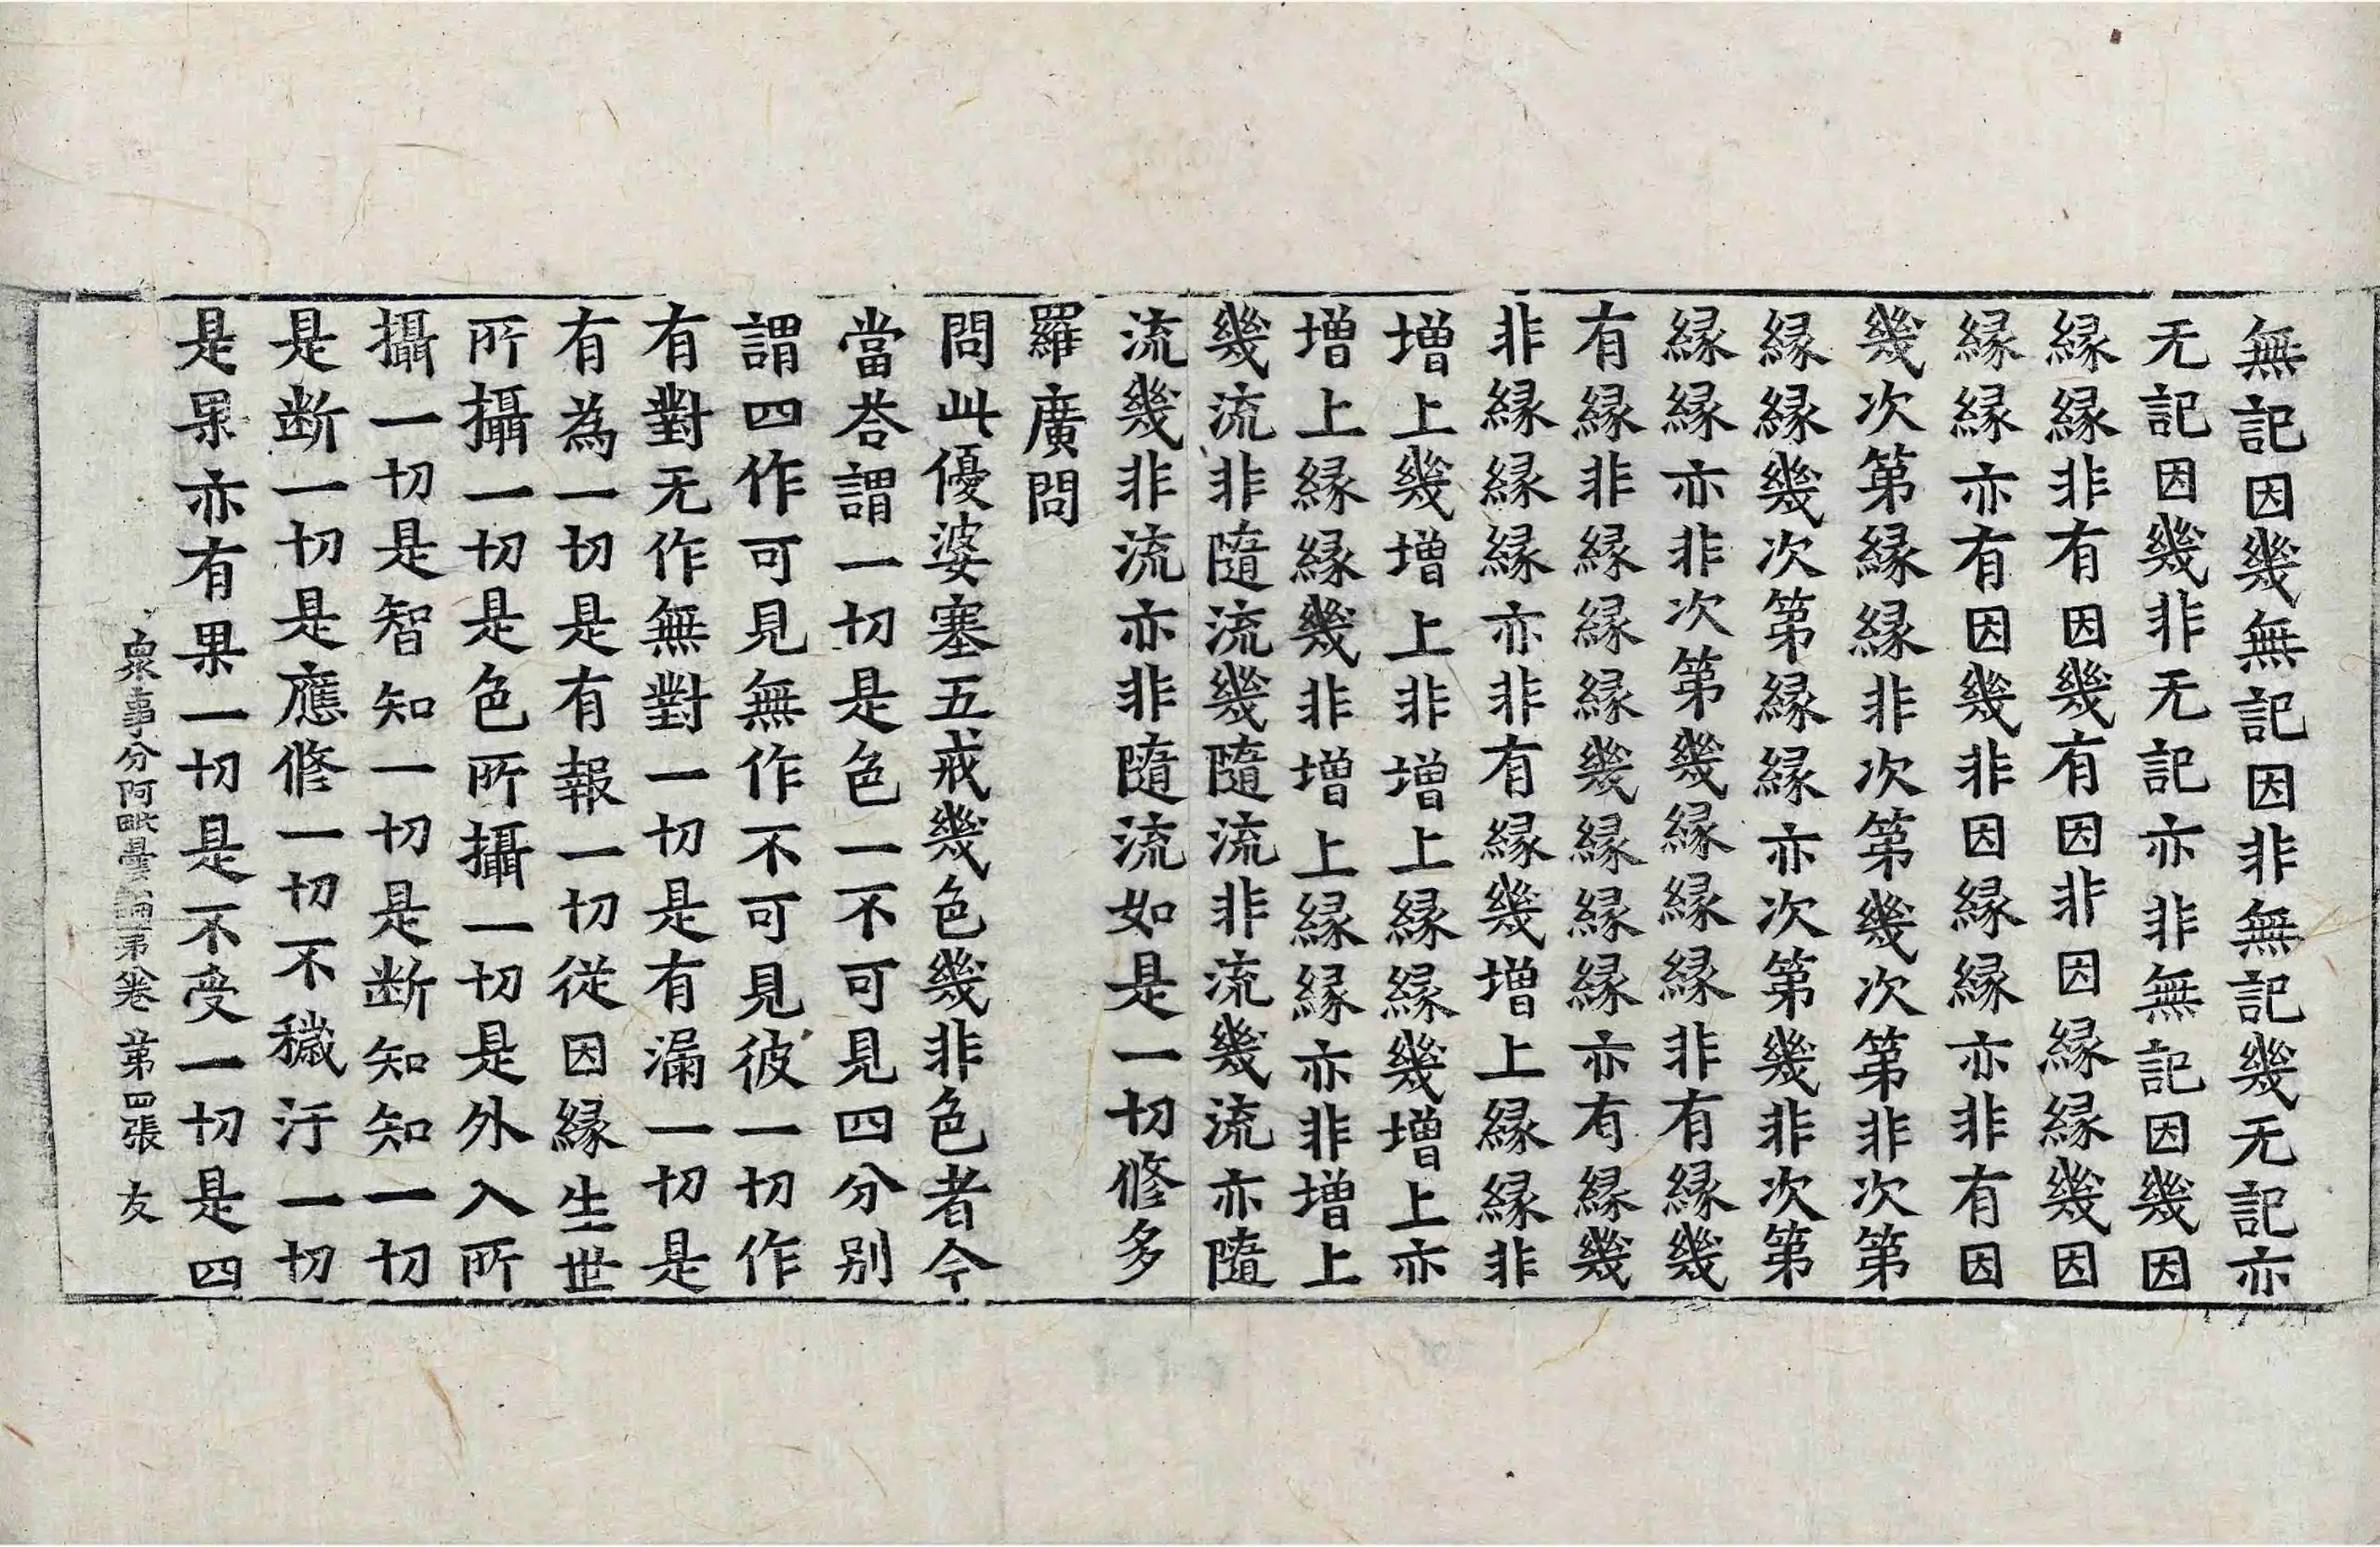 無記因幾無記因非無記幾无記亦
无記因幾非无記亦非無記因幾因
縁縁非有因幾有因非因縁縁幾因
縁縁亦有因幾非因縁縁亦非有因
幾次第縁縁非次第幾次第非次第
縁縁幾次第縁縁亦次第幾非次第
縁縁亦非次第幾縁縁縁非有縁幾
有縁非縁縁縁幾縁縁縁亦有縁幾
非縁縁縁亦非有縁幾增上縁縁非
增上幾增上非增上縁縁幾增上亦
增上縁縁幾非增上縁縁亦非增上
幾流非隨流幾隨流非流幾流亦隨
流幾非流亦非隨流如是一切修多
羅廣問
問此優婆塞五戒幾色幾非色者今
當荅謂一切是色一不可見四分别
謂四作可見無作不可見彼一切作
有對无作無對一切是有漏一切是
有為一切是有報一切從因縁生世
所攝一切是色所攝一切是外入所
攝一切是智知一切是断知知一切
是断一切是應修一切不穢汙一切
是果亦有果一切是不受一切是四
衆事分阿毗曇論第卷 第四張 友